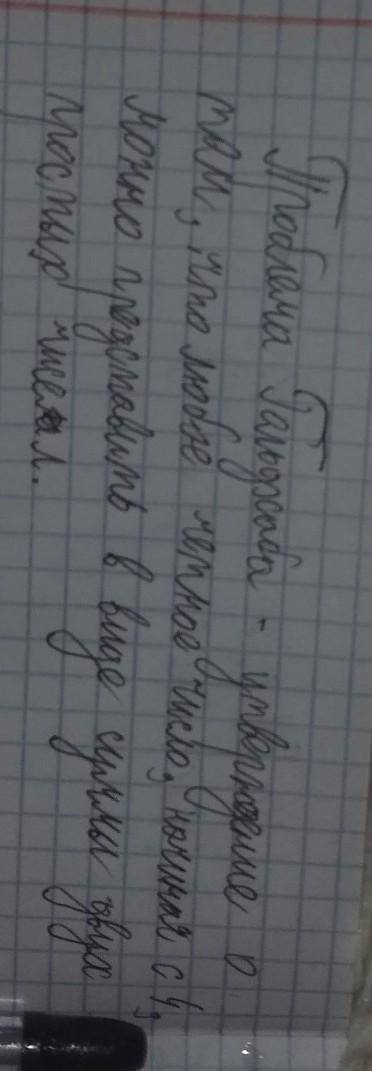 Проблема Гольдхаба - утверждение о
том, что любое четное число, начиная с 4,
можно представить в виде суммы двух
простых чисел.